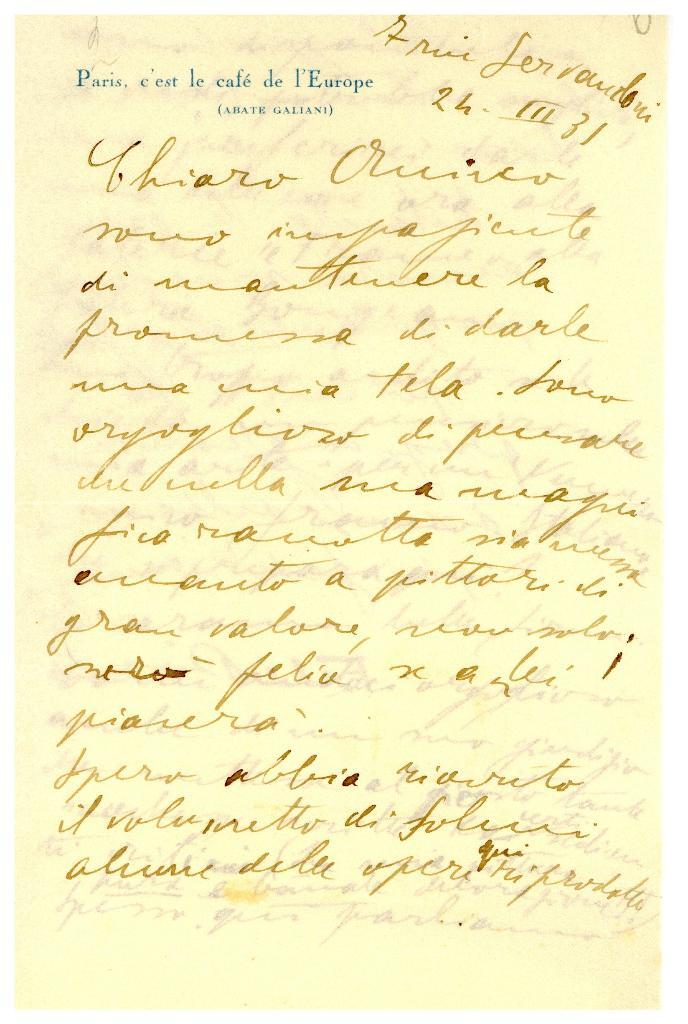 7 rue Servandoni
24. III 31
Paris, c'est le café de l'Europe
(ABATE GALIANI)
Chiaro Amico
sono impaziente
di mantenere la
promessa di darle
una mia tela. Sono
orgoglioso di pensare
che nella sua magni
fica raccolta sia messa
accanto a pittori di
gran valore, non solo;
sarò felice se a Lei
piacerà.
Spero abbia ricevuto
il volumetto di Solmi
alcune delle opere qui riprodotte